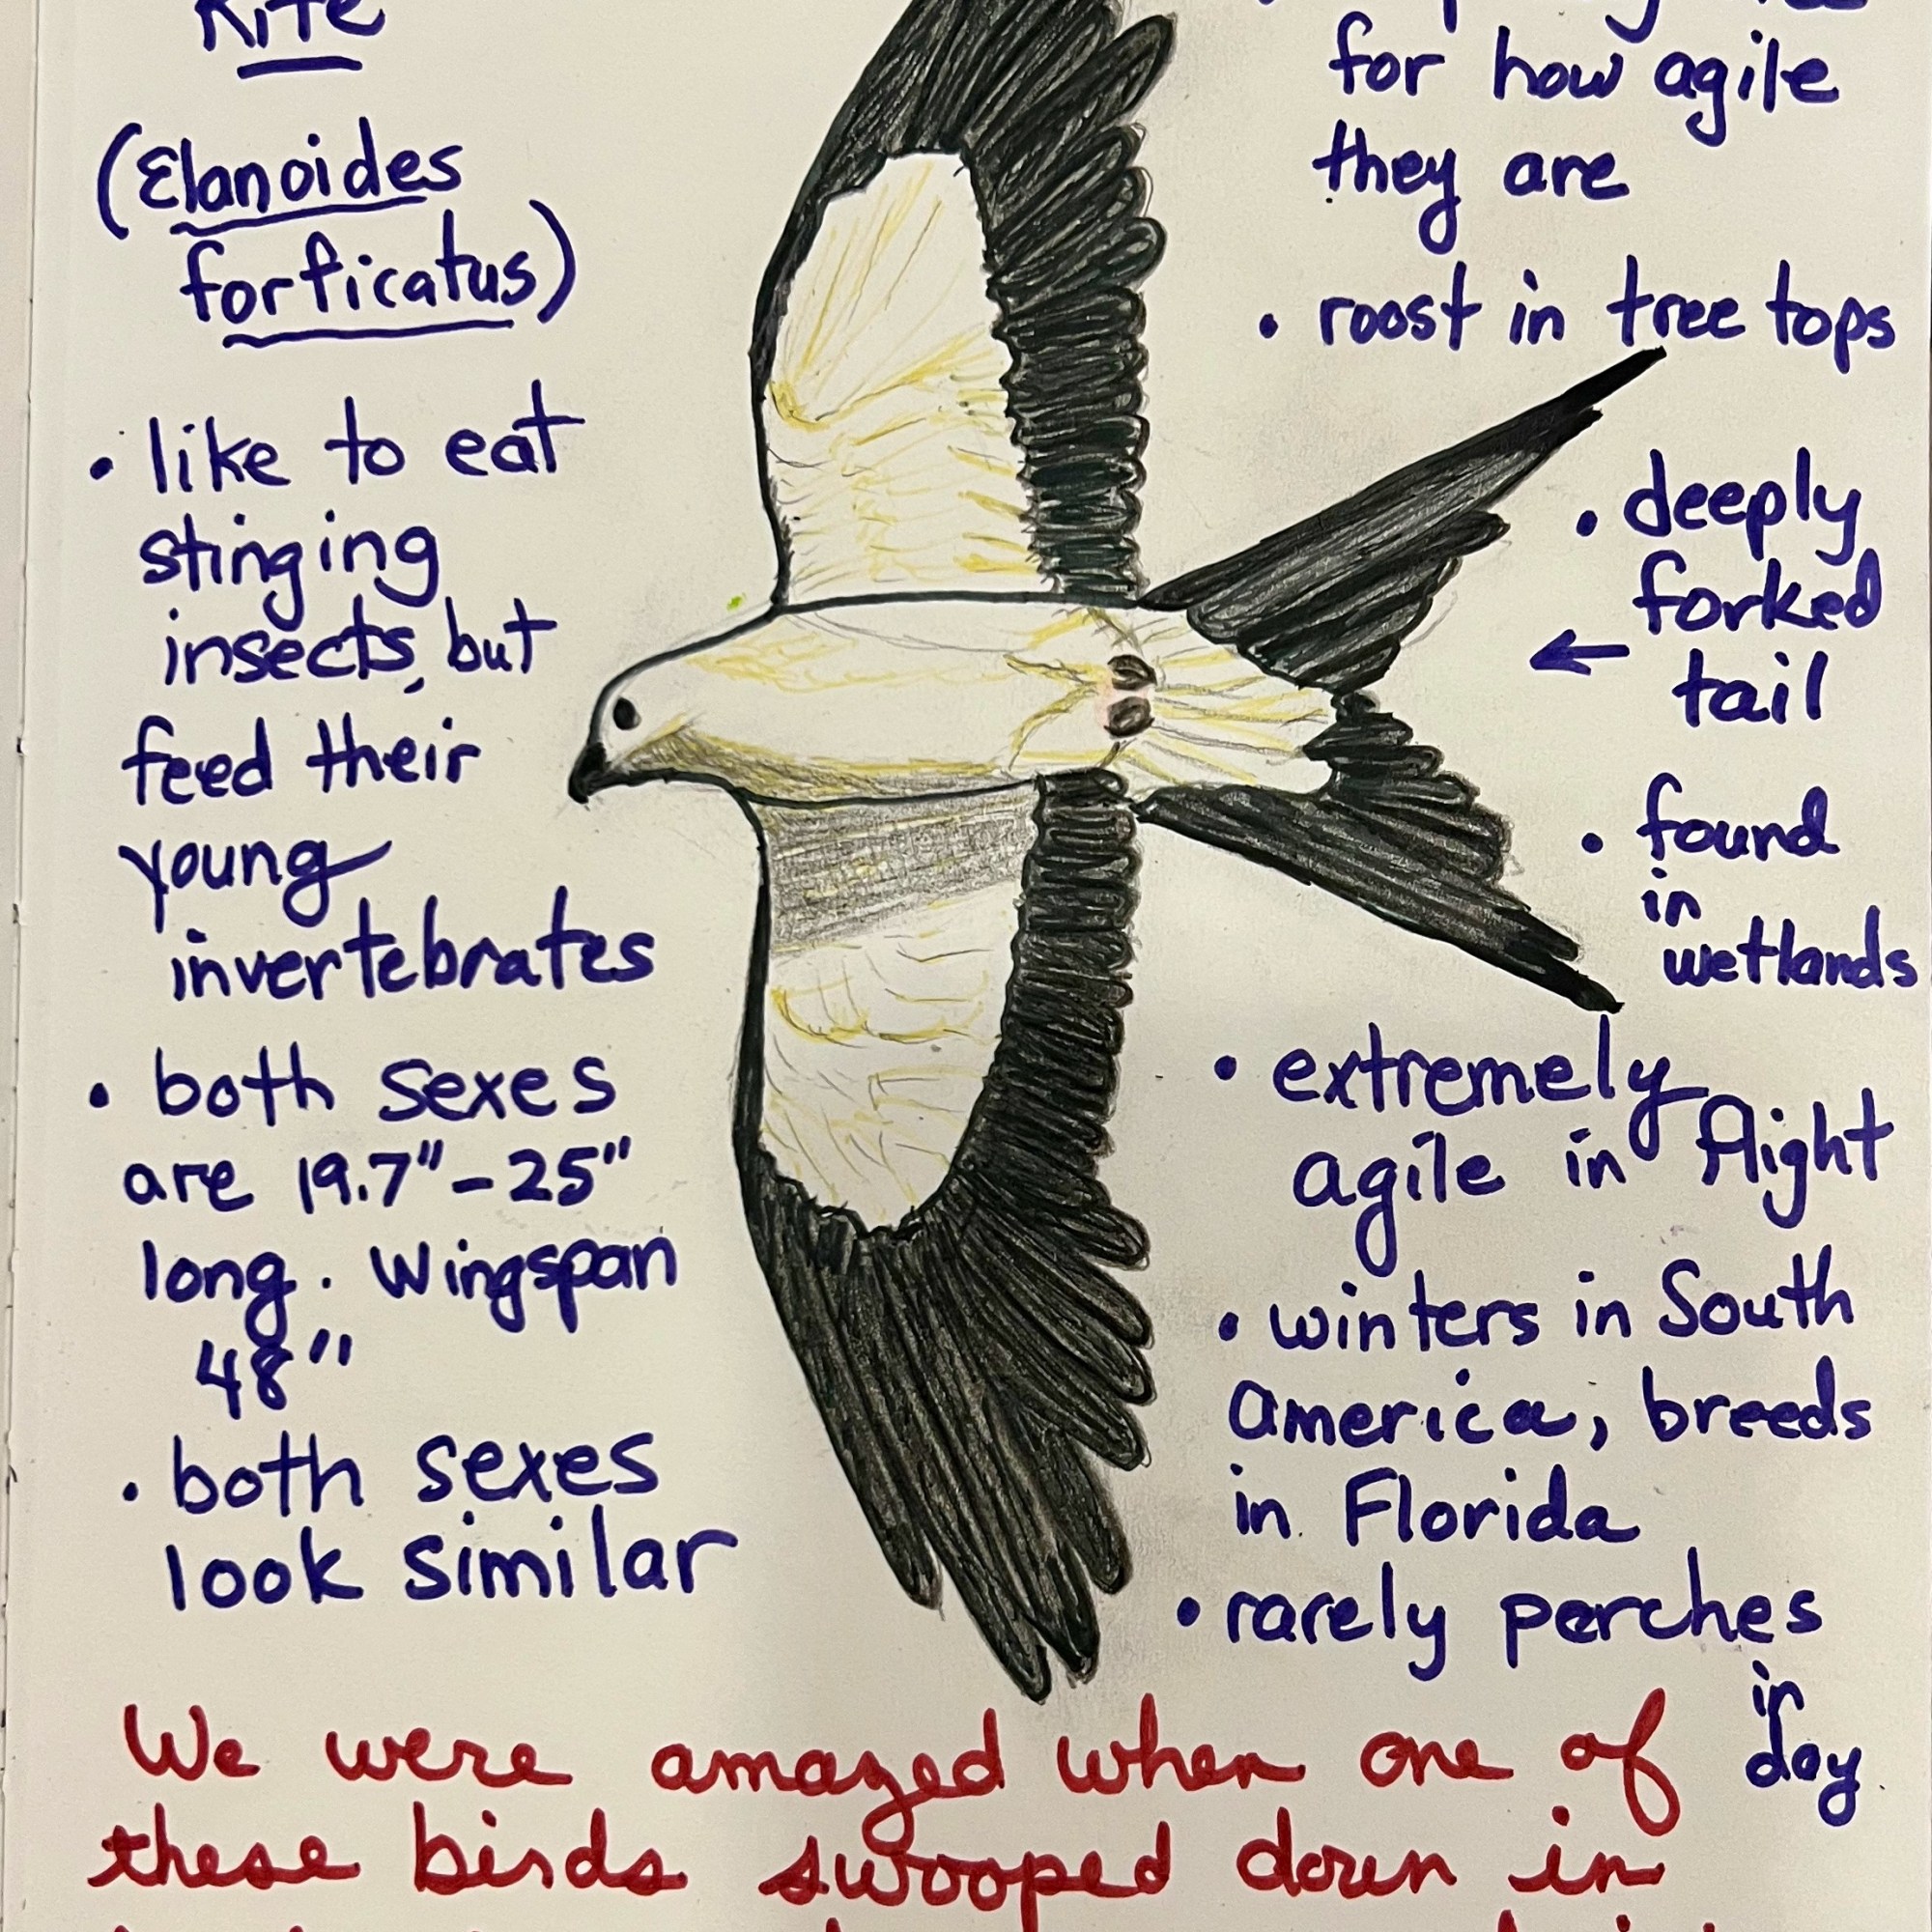 Kite
(Elanoides
forficatus)
• like to eat
stinging
insects, but
feed their
young
invertebrates
• both sexes
are 19.7"-25"
long. Wingspan
48"
• both sexes
look similar
for how agile
they are
• roost in tree tops
• deeply
forked
← tail
• found
in
wetlands
• extremely
agile in flight
• winters in South
America, breeds
in Florida
• rarely perches
in
day
We were amazed when one of
these birds swooped down in